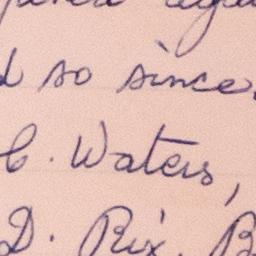 so since.
C. Waters,
D. Rix. B